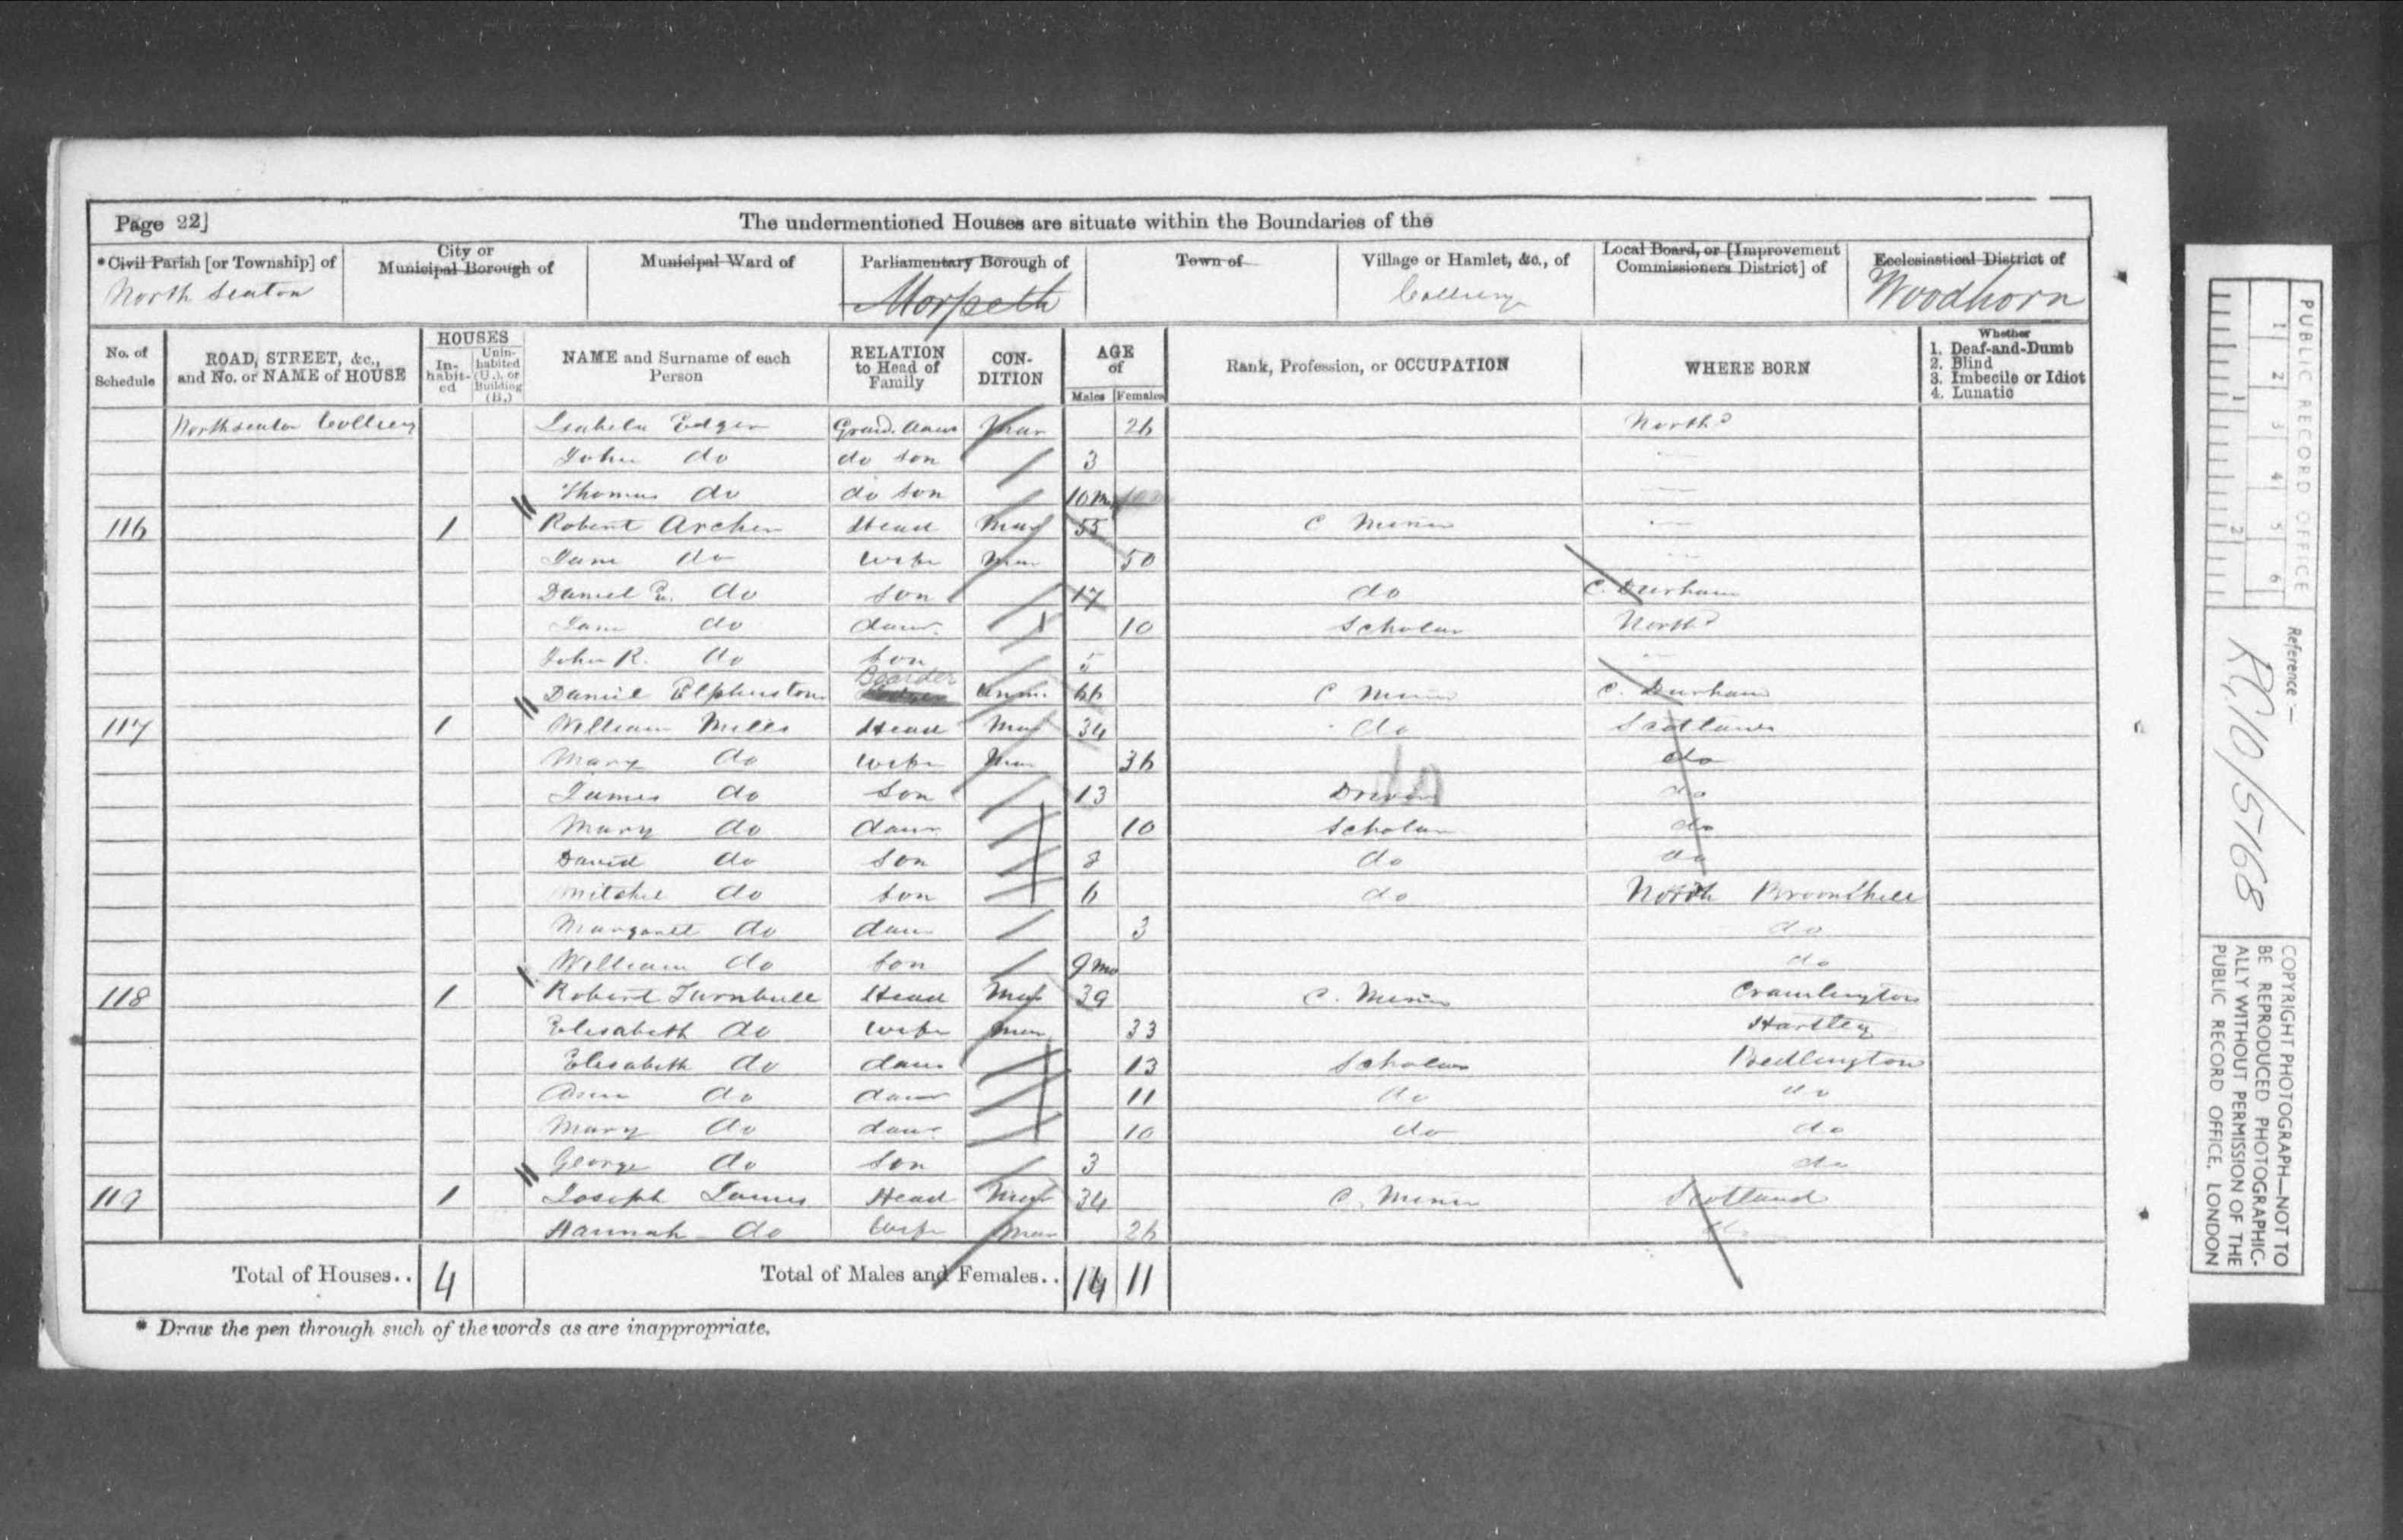 Page 22] The undermentioned Houses are situate within the Boundaries of the
*Civil Parish [or Township] of City or Municipal Borough of Municipal Ward of Parliamentary Borough of Town of Village or Hamlet, &c., of Local Board, or [Improvement Commissioners District] of Ecclesiastical District of
North Seaton Morpeth Colliery Woodhorn
No. of Schedule ROAD, STREET, &c., and No. or NAME of HOUSE HOUSES In-habit-ed Unin-habited (U.), or Building (B.) NAME and Surname of each Person RELATION to Head of Family CON-DITION AGE of Males Females Rank, Profession, or OCCUPATION WHERE BORN Whether 1. Deaf-and-Dumb 2. Blind 3. Imbecile or Idiot 4. Lunatic
North seaton Colliery Isabela Edger Grand. daur Mar 26 Northd
John do do son 3
Thomas do do son 10 m
116 1 Robert Archer Head Mar 55 C Miner
Jane do wife Mar 50
Daniel E. do son 17 do C. Durham
Jane do daur. 10 Scholar Northd
John R. do son 5
Daniel Elphinston Boarder Unm. 66 C Miner C. Durham
117 1 William Mills Head Mar 34 do Scotland
Mary do wife Mar 36 do
James do son 13 Driver do
Mary do daur 10 Scholar do
David do son 8 do do
Mitchel do son 6 do North Broomhill
Margaret do daur 3 do
William do son 9 mo do
118 1 Robert Turnbull Head Mar 39 C. Miner Cramlington
Elisabeth do wife Mar 33 Hartley
Elisabeth do daur 13 Scholar Bedlington
Ann do daur 11 do do
Mary do daur 10 do do
George do son 3 do
119 1 Joseph James Head Mar 34 C. Miner Scotland
Hannah do wife Mar 26 do
Total of Houses.. 4 Total of Males and Females.. 14 11
* Draw the pen through such of the words as are inappropriate.
PUBLIC RECORD OFFICE
1 2 3 4 5 6
1 2
Reference:—
R.G. 10/5168
COPYRIGHT PHOTOGRAPH—NOT TO
BE REPRODUCED PHOTOGRAPHIC-
ALLY WITHOUT PERMISSION OF THE
PUBLIC RECORD OFFICE, LONDON